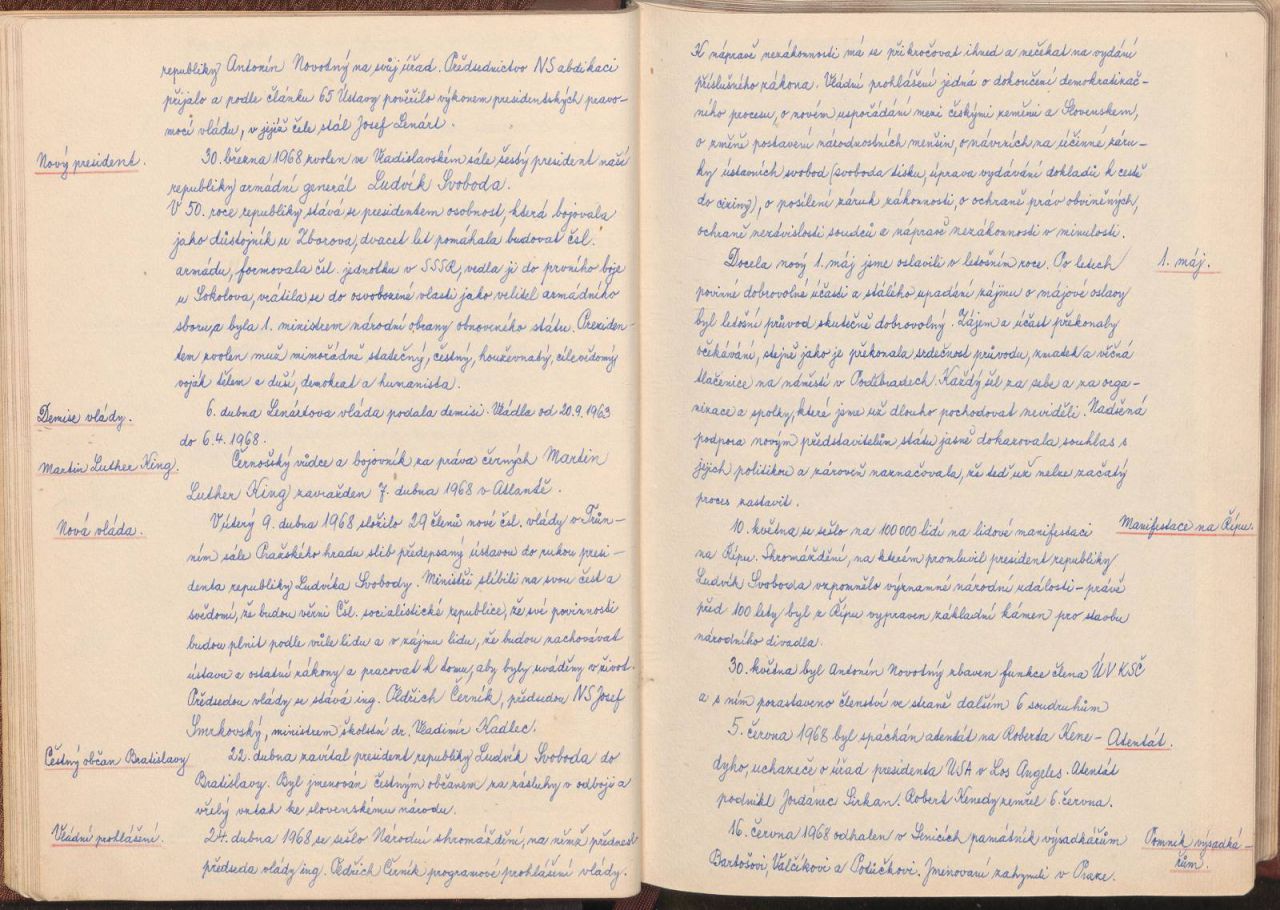 republiky Antonín Novotný na svůj úřad. Předsednictvo NS abdikaci
přijalo a podle článku 65 Ústavy pověřilo výkonem presidentských pravo-
mocí vládu, v jejíž čele stál Josef Lenárt.
Nový president.
30. března 1968 zvolen ve Vladislavském sále šestý president naší
republiky armádní generál Ludvík Svoboda.
V 50. roce republiky stává se presidentem osobnost, která bojovala
jako důstojník u Zborova, dvacet let pomáhala budovat čsl.
armádu, formovala čsl. jednotku v SSSR, vedla ji do prvního boje
u Sokolova, vrátila se do osvobozené vlasti jako velitel armádního
sboru, a byla 1. ministrem národní obrany obnoveného státu. Preziden-
tem zvolen muž mimořádně statečný, čestný, houževnatý, cílevědomý,
voják tělem a duší, demokrat a humanista.
Demise vlády.
6. dubna Lenártova vláda podala demisi. Vládla od 20.9.1963
do 6.4.1968.
Martin Luther King.
Černošský vůdce a bojovník za práva černých Martin
Luther King zavražděn 7. dubna 1968 v Atlantě.
Nová vláda.
V úterý 9. dubna 1968 složilo 29 členů nové čsl. vlády v Trůn-
ním sále Pražského hradu slib předepsaný ústavou do rukou presi-
denta republiky Ludvíka Svobody. Ministři slíbili na svou čest a
svědomí, že budou věrni Čsl. socialistické republice, že své povinnosti
budou plnit podle vůle lidu a v zájmu lidu, že budou zachovávat
ústavu a ostatní zákony a pracovat k tomu, aby byly uváděny v život.
Předsedou vlády se stává ing. Oldřich Černík, předsedou NS Josef
Smrkovský, ministrem školství dr. Vladimír Kadlec.
Čestný občan Bratislavy
22. dubna zavítal president republiky Ludvík Svoboda do
Bratislavy. Byl jmenován čestným občanem za zásluhy v odboji a
vřelý vztah ke slovenskému národu.
Vládní prohlášení.
24. dubna 1968 se sešlo Národní shromáždění, na němž přednesl
předseda vlády ing. Oldřich Černík programové prohlášení vlády.
K nápravě nezákonnosti má se přikročovat ihned a nečekat na vydání
příslušného zákona. Vládní prohlášení jedná o dokončení demokratizač-
ního procesu, o novém uspořádání mezi českými zeměmi a Slovenskem,
o změně postavení národnostních menšin, o návrzích na účinné záru-
ky ústavních svobod (svoboda tisku, úprava vydávání dokladů k cestě
do ciziny), o posílení záruk zákonnosti, o ochraně práv obviněných,
ochraně nezávislosti soudců a nápravě nezákonnosti v minulosti.
1. máj.
Docela nový 1. máj jsme oslavili v letošním roce. Po letech
povinné dobrovolné účasti a stálého upadání zájmu o májové oslavy
byl letošní průvod skutečně dobrovolný. Zájem a účast překonaly
očekávání, stejně jako je překonala srdečnost průvodu, zmatek a věčná
tlačenice na náměstí v Poděbradech. Každý šel za sebe a za orga-
nizace a spolky, které jsme už dlouho pochodovat neviděli. Nadšená
podpora novým představitelům státu jasně dokazovala souhlas s
jejich politikou a zároveň naznačovala, že teď už nelze začatý
proces zastavit.
Manifestace na Řípu.
10. května se sešlo na 100 000 lidí na lidové manifestaci
na Řípu. Shromáždění, na kterém promluvil president republiky
Ludvík Svoboda vzpomnělo významné národní události - právě
před 100 lety byl z Řípu vypraven základní kámen pro stavbu
národního divadla.
30. května byl Antonín Novotný zbaven funkce člena ÚV KSČ
a s ním pozastaveno členství ve straně dalším 6 soudruhům
Atentát.
5. června 1968 byl spáchán atentát na Roberta Kene-
dyho, uchazeče o úřad presidenta USA v Los Angeles. Atentát
podnikl Jordánec Sirhan. Robert Kenedy zemřel 6. června.
Pomník výsadká-
řům.
16. června 1968 odhalen v Senicích památník výsadkářům
Bartošovi, Valčíkovi a Potůčkovi. Jmenovaní zahynuli v Praze.